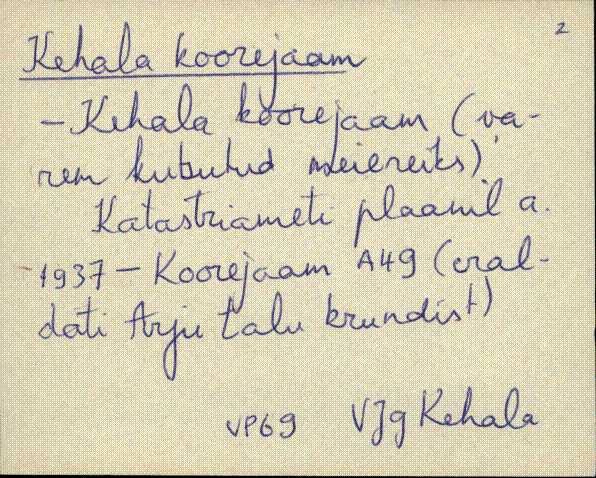 2
Kehala koorejaam
- Kehala koorejaam (va-
rem kutsutud meiereiks).
Katastriameti plaanil a.
1937 - Koorejaam A49 (eral-
dati Arju talu krundist)
VP69 VJg Kehala